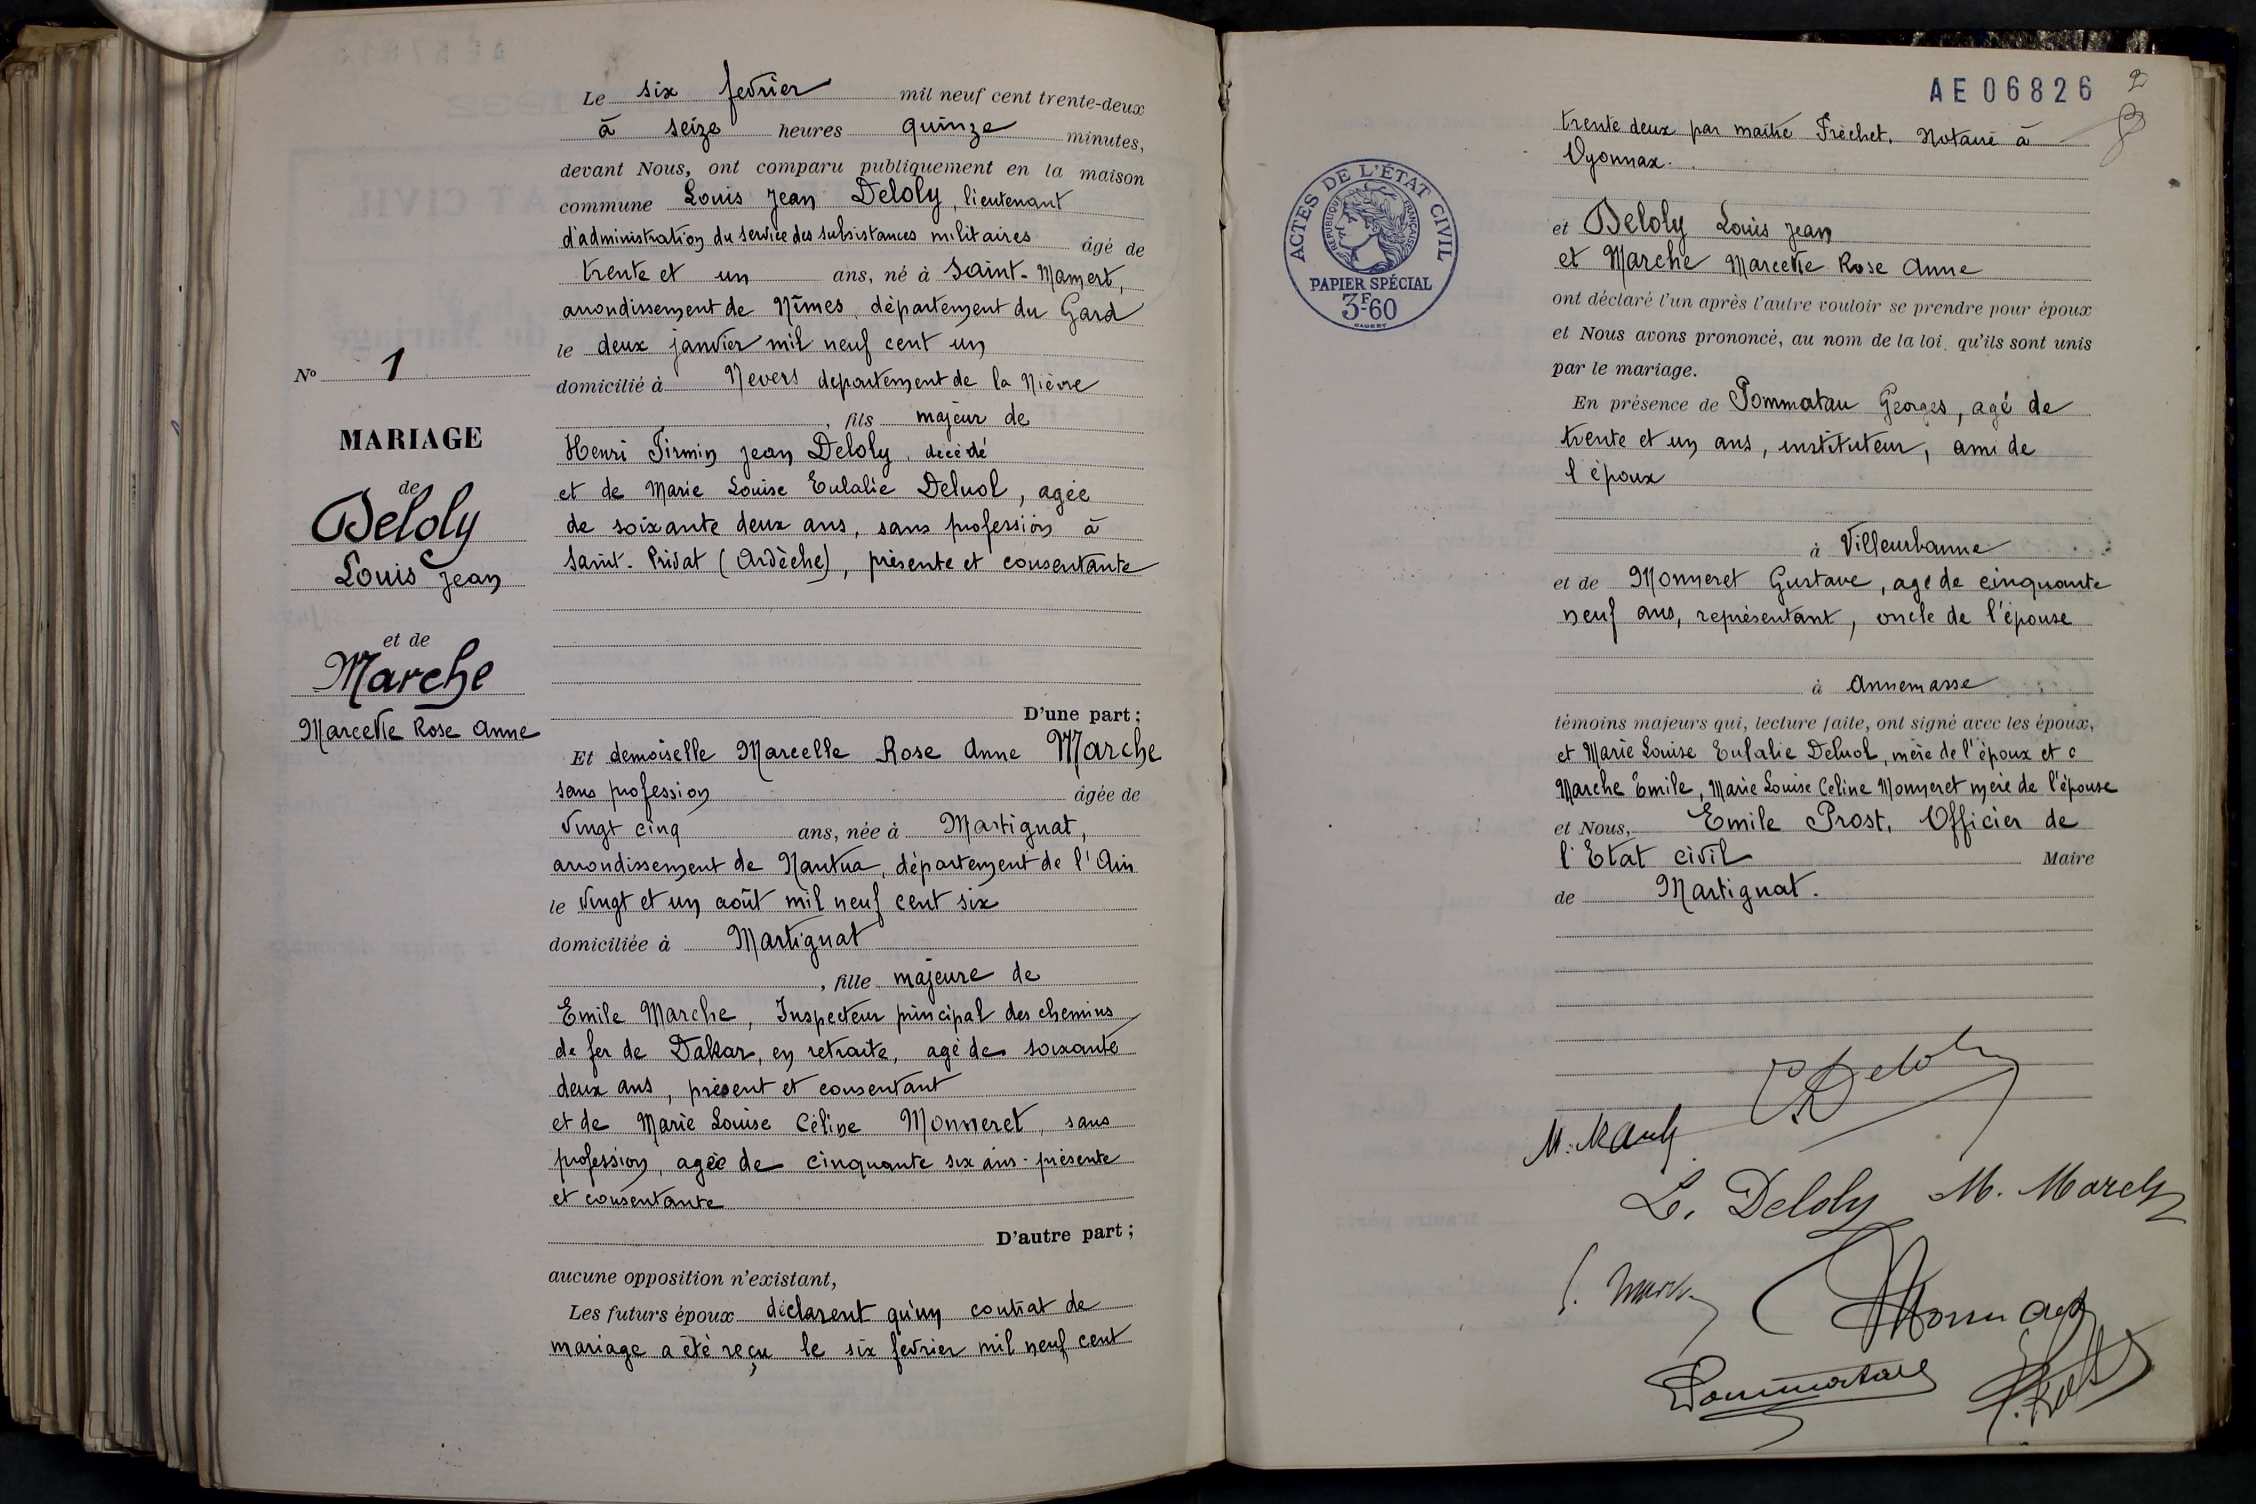 Le six fevrier mil neuf cent trente-deux
à seize heures quinze minutes,
devant Nous, ont comparu publiquement en la maison
commune Louis Jean Deloly, lieutenant
d'administration du service des subsistances militaires âgé de
trente et un ans, né à Saint-Mamert,
arrondissement de Nîmes, département du Gard
le deux janvier mil neuf cent un
domicilié à Nevers departement de la Nièvre
, fils majeur de
Henri Firmin Jean Deloly, décédé
et de Marie Louise Eulalie Deluol, agée
de soixante deux ans, sans profession à
Saint-Privat (Ardèche), présente et consentante
D'une part;
Nº 1
MARIAGE
de
Deloly
Louis Jean
et de
Marche
Marcelle Rose Anne
Et demoiselle Marcelle Rose Anne Marche
sans profession âgée de
vingt cinq ans, née à Martignat,
arrondissement de Nantua, département de l'Ain
le vingt et un août mil neuf cent six
domiciliée à Martignat
, fille majeure de
Emile Marche, Inspecteur principal des chemins
de fer de Dakar, en retraite, agé de soixante
deux ans, présent et consentant
et de Marie Louise Céline Monneret, sans
profession, agée de cinquante six ans. présente
et consentante
D'autre part;
aucune opposition n'existant,
Les futurs époux déclarent qu'un contrat de
mariage a été reçu le six fevrier mil neuf cent
AE 06826
2
trente deux par maître Fréchet, Notaire à
Oyonnax.
ACTES DE L'ÉTAT CIVIL
RÉPUBLIQUE FRANÇAISE
PAPIER SPÉCIAL
3F60
et Deloly Louis Jean
et Marche Marcelle Rose Anne
ont déclaré l'un après l'autre vouloir se prendre pour époux
et Nous avons prononcé, au nom de la loi, qu'ils sont unis
par le mariage.
En présence de Pommatau Georges, agé de
trente et un ans, instituteur, ami de
l'époux
à Villeurbanne
et de Monneret Gustave, agé de cinquante
neuf ans, représentant, oncle de l'épouse
à Annemasse
témoins majeurs qui, lecture faite, ont signé avec les époux,
et Marie Louise Eulalie Deluol, mère de l'époux et
Marche Emile, Marie Louise Céline Monneret mère de l'épouse
et Nous, Emile Prost, Officier de
l'Etat civil Maire
de Martignat.
Deloly
L. Deloly M. Marche
Pommatau